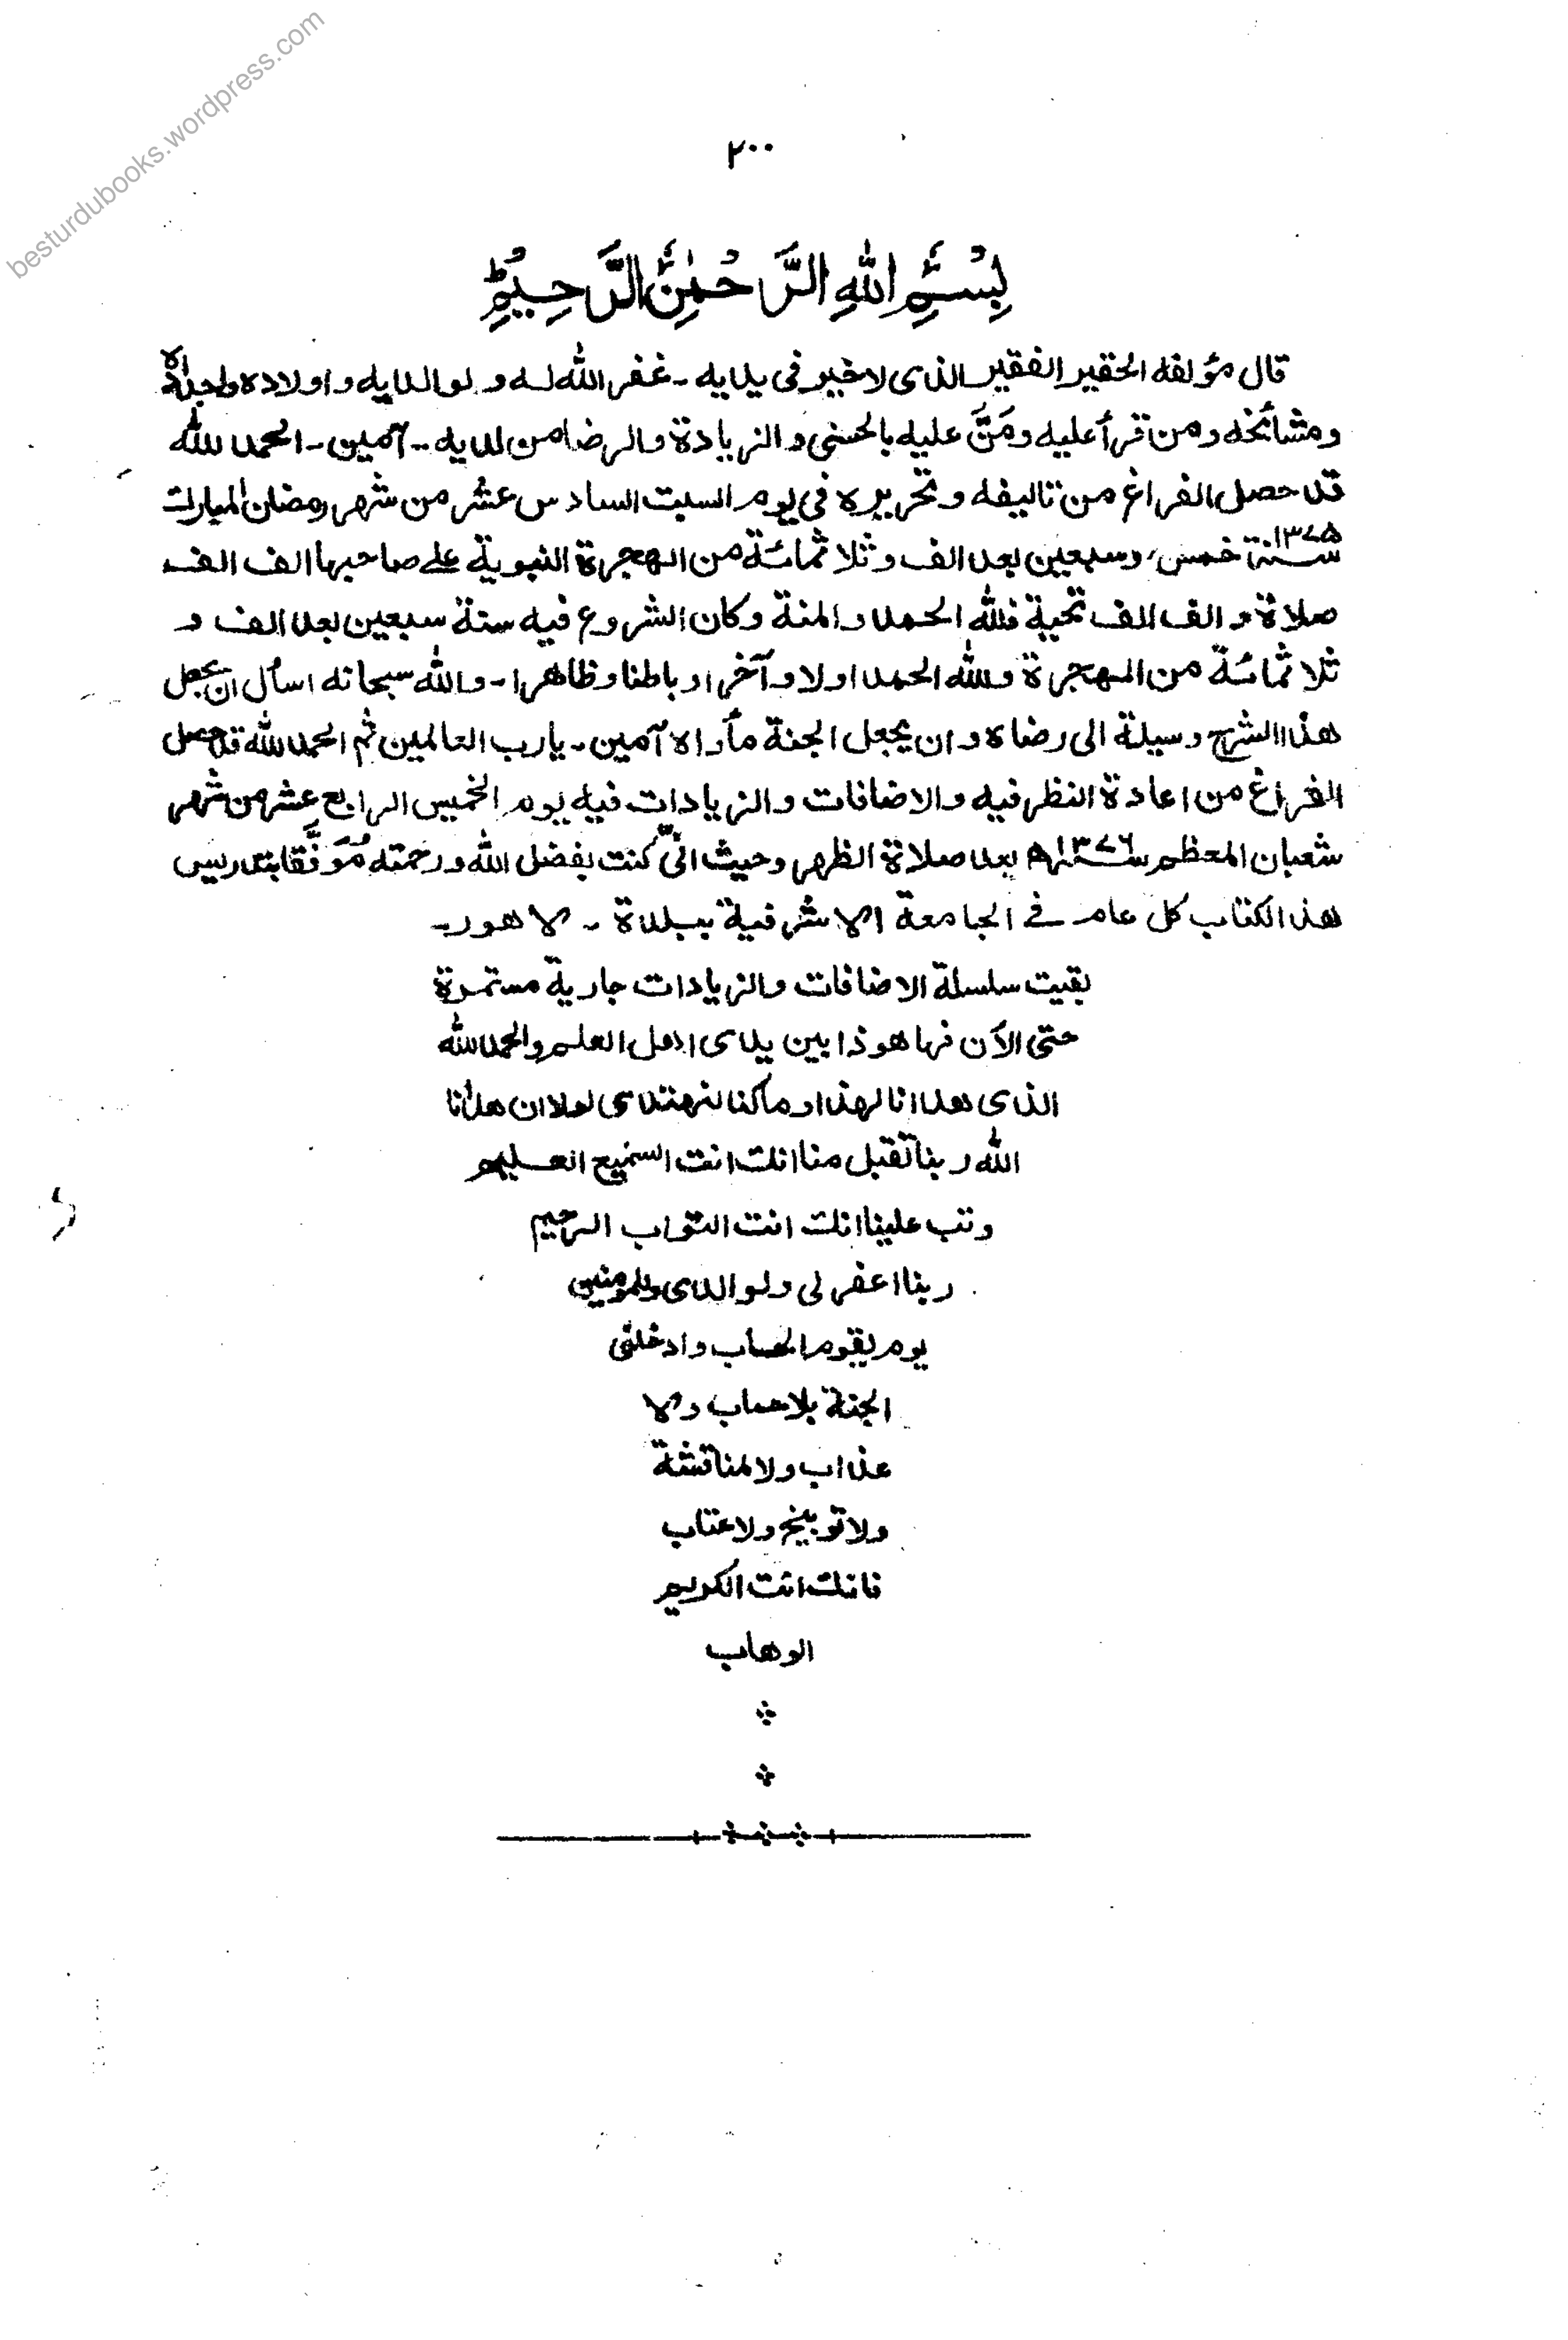 besturdubooks.wordpress.com
٢٠٠
بِسْمِ اللهِ الرَّحْمٰنِ الرَّحِيْمِ
قال مؤلفه الحقير الفقير الذى لاخير فى يديه ـ غفر الله له ولوالديه واولاده واجداده
ومشائخه ومن قرأ عليه ومَنَّ عليه بالحسنى والزيادة والرضا من لديه ـ آمين ـ الحمد لله
قد حصل الفراغ من تاليفه وتحريره فى يوم السبت السادس عشر من شهر رمضان المبارك
سنة ١٣٧٥ خمس وسبعين بعد الف وثلاثمائة من الهجرة النبوية على صاحبها الف الف
صلاة والف الف تحية فلله الحمد والمنة وكان الشروع فيه ستة سبعين بعد الف و
ثلاثمائة من الهجرة ولله الحمد اولا وآخرا وباطنا وظاهرا ـ والله سبحانه اسأل ان يجعل
هذا الشرح وسيلة الى رضاه وان يجعل الجنة مأواه آمين ـ يارب العالمين ثم الحمد لله قد حصل
الفراغ من اعادة النظر فيه والاضافات والزيادات فيه يوم الخميس الرابع عشر من شهر
شعبان المعظم سنة ١٣٧٦ھ بعد صلاة الظهر وحيث انّى كنت بفضل الله ورحمته مُوَفَّقا بتدريس
هذا الكتاب كل عام فى الجامعة الاشرفية ببلدة ـ لاهور ـ
بقيت سلسلة الاضافات والزيادات جارية مستمرة
حتى الآن فها هوذا بين يدى اهل العلم والحمد لله
الذى هدانا لهذا وماكنا لنهتدى لولا ان هدانا
الله ربنا تقبل منا انك انت السميع العليم
وتب علينا انك انت التواب الرحيم
ربنا اغفر لى ولوالدى وللمومنين
يوم يقوم الحساب وادخلنى
الجنة بلاحساب ولا
عذاب ولا لمناقشة
ولا توبيخ ولا عتاب
فانك انت الكريم
الوهاب